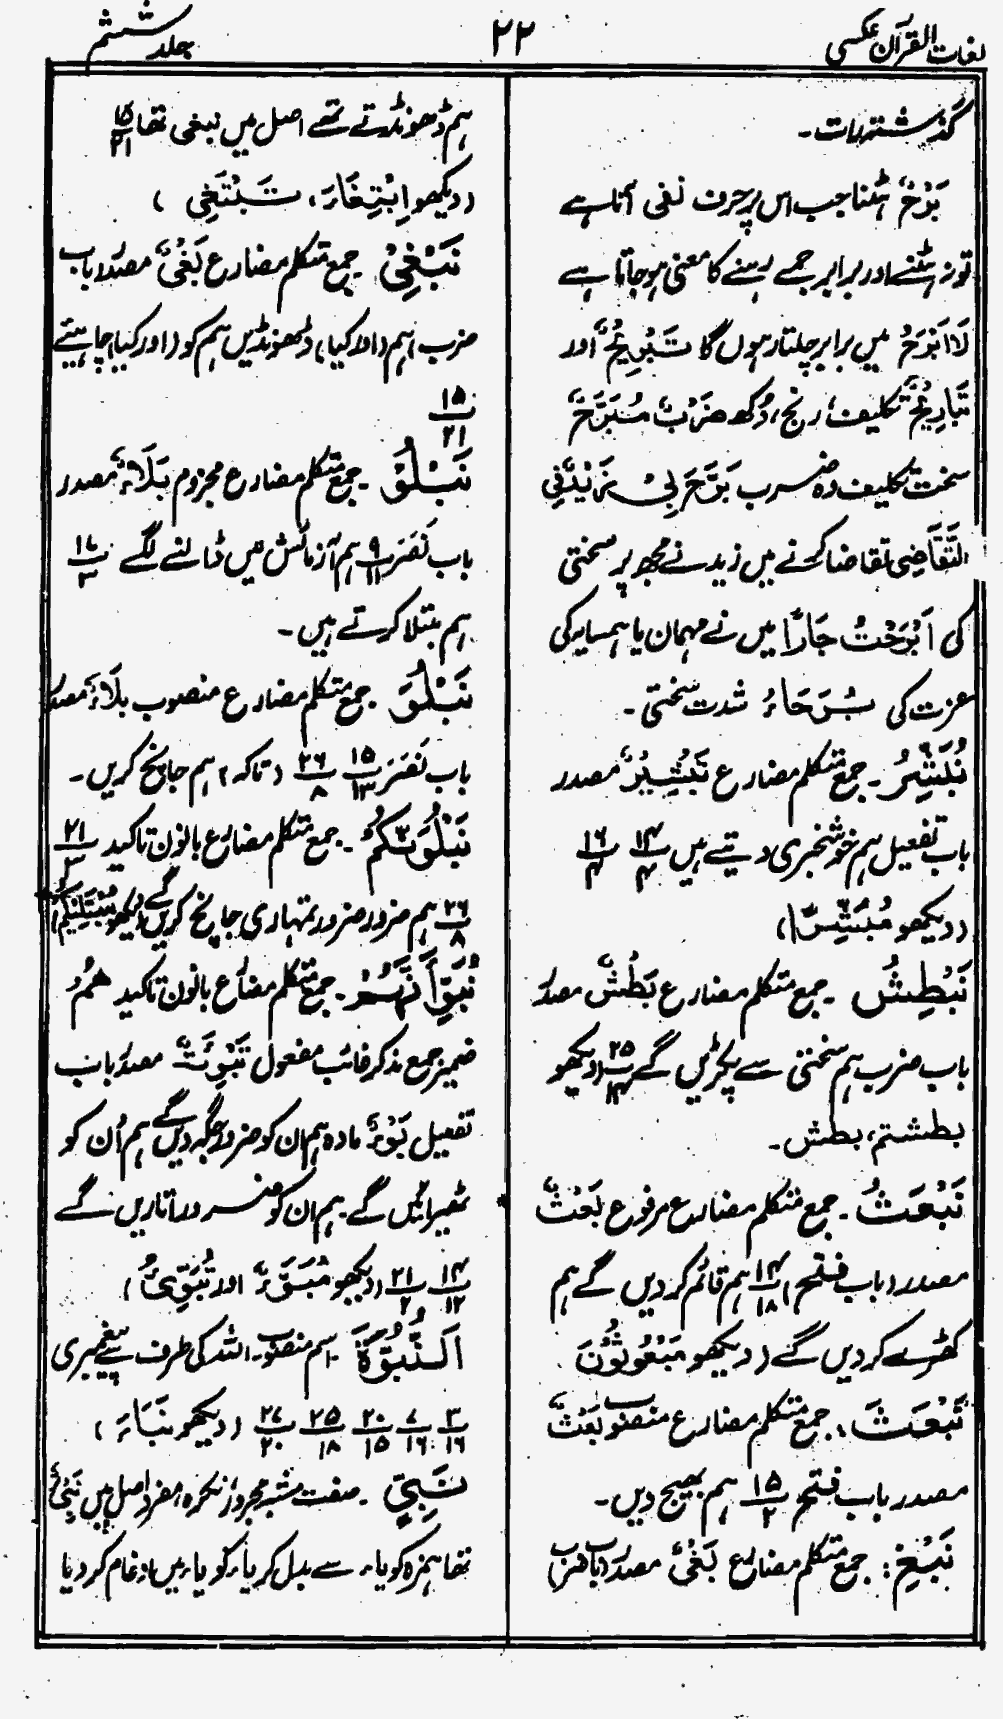 لغات القرآن عکسی
۲۲
جلد ششم
گذشتہ بات۔
بَرْحٌ ہٹنا جب اس پر حرف نفی آتا ہے
تو نہ ہٹنے اور برابر جمے رہنے کا معنی ہو جاتا ہے
لَا اَبْرَحُ میں برابر چلتا رہوں گا تَبْرِيْحٌ اور
تَبَارِيْحُ تکلیف، رنج، دُکھ ضَرْبٌ مُبَرَّحٌ
سخت تکلیف دہ ضرب بَرَّحَ بِیْ زَيْدٌ فِی
التَّقَاضِی تقاضا کرنے میں زید نے مجھ پر سختی
کی اَبْرَحْتُ جَارًا میں نے مہمان یا ہمسایہ کی
عزت کی بُرَحَاءُ شدت سختی۔
نُبَشِّرُ۔ جمع متکلم مضارع تَبْشِيْرٌ مصدر
باب تفعیل ہم خوشخبری دیتے ہیں ۱۴/۴ ۱۶/۴
(دیکھو مُبَشِّرًا)
نَبْطِشُ۔ جمع متکلم مضارع بَطْشٌ مصدر
باب ضرب ہم سختی سے پکڑیں گے ۲۵/۱۴ (دیکھو
بطشتم، بطش۔
نَبْعَثُ۔ جمع متکلم مضارع مرفوع بَعْثٌ
مصدر (باب فتح) ۱۴/۱۸ ہم قائم کر دیں گے ہم
کھڑے کر دیں گے (دیکھو مَبْعُوثُوْنَ
نَبْعَثَ، جمع متکلم مضارع منصوب بَعْثٌ
مصدر باب فتح ۱۵/۲ ہم بھیج دیں۔
نَبْغِ: جمع متکلم مضارع بَغْیٌ مصدر (باب ضرب)
ہم ڈھونڈتے تھے اصل میں نبغی تھا ۱۵/۲۱
(دیکھو اِبْتِغَاءَ، تَبْتَغِی)
نَبْغِیْ جمع متکلم مضارع بَغْیٌ مصدر باب
ضرب ہم (اور کیا) ڈھونڈیں ہم کو (اور کیا) چاہیئے
۱۵/۲۱
نَبْلُوْ۔ جمع متکلم مضارع مجزوم بَلَاءٌ مصدر
باب نَصَرَ ۹/۱۱ ہم آزمائش میں ڈالنے لگے ۱۷/۳
ہم مبتلا کرتے ہیں۔
نَبْلُوَ جمع متکلم مضارع منصوب بَلَاءٌ مصدر
باب نَصَرَ ۱۵/۱۳ ۲۶/۸ (تاکہ) ہم جانچ کریں۔
نَبْلُوَنَّكُمْ۔ جمع متکلم مضارع بانون تاکید ۲۱/۳
۲۶/۸ ہم ضرور ضرور تمہاری جانچ کریں گے (دیکھو مُبْتَلِيْكُمْ)
نُبَوِّأَنَّهُمْ۔ جمع متکلم مضارع بانون تاکید هُمْ
ضمیر جمع مذکر غائب مفعول تَبْوِئَةٌ مصدر باب
تفعیل بَوْءٌ مادہ ہم ان کو ضرور جگہ دیں گے ہم اُن کو
ٹھیرائیں گے ہم ان کو ضرور اتاریں گے
۱۴/۱۲ ۲۱/۲ (دیکھو مُبَوَّءَ اور تُبَوِّئُ)
اَلنُّبُوَّةَ۔ اسم منصوب۔ اللہ کی طرف سے پیغمبری
۳/۱۶ ۷/۱۶ ۲۰/۱۵ ۲۵/۱۸ ۲۷/۲۰ (دیکھو نَبَاءَ)
نَبِیٍّ۔ صفت مشبہ مجرور نکرہ مفرد اصل میں نَبِیْءٌ
تھا ہمزہ کو یاء سے بدل کر یاء کو یاء میں ادغام کر دیا